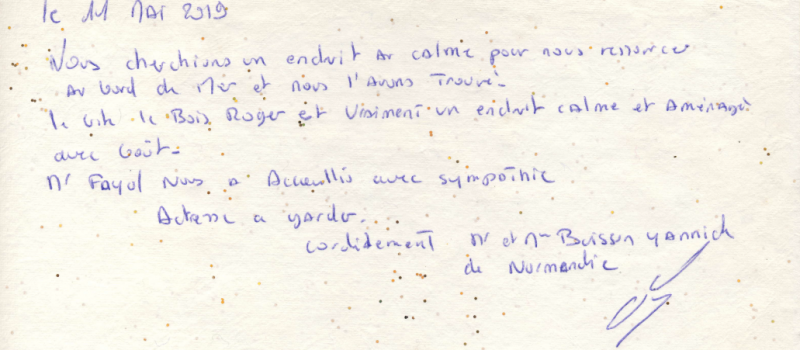 le 11 MAi 2019
Nous cherchions un endroit Au calme pour nous ressourcer
Au bord de Mer et nous l'Avons Trouvé.
le Gîte le Bois Roger est vraiment un endroit calme et Aménagé
avec Goût.
Mr Fayol Nous a Accueillis avec sympathie
Adresse a garder.
Cordialement Mr et Mme Buisson YAnnick
de Normandie